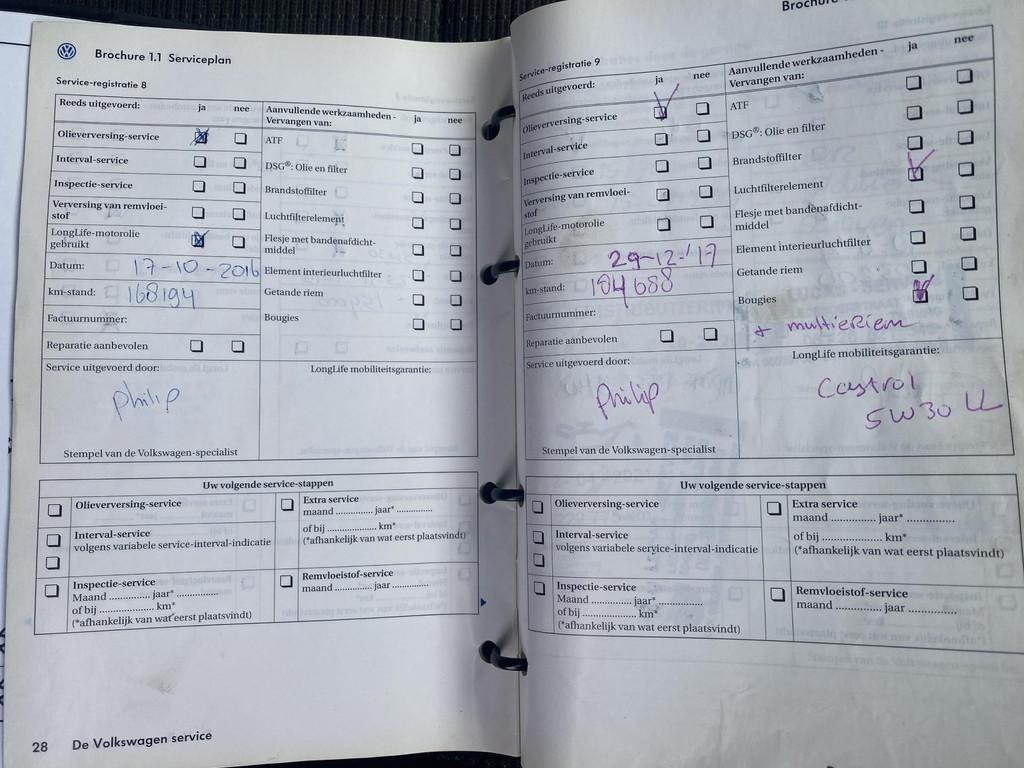 Brochure 1.1 Serviceplan
Service-registratie 8
Reeds uitgevoerd: ja nee
Olieverversing-service
Interval-service
Inspectie-service
Verversing van remvloei-
stof
LongLife-motorolie
gebruikt
Datum: 17-10-2016
km-stand: 168194
Factuurnummer:
Reparatie aanbevolen
Service uitgevoerd door:
Philip
Stempel van de Volkswagen-specialist
Aanvullende werkzaamheden - ja nee
Vervangen van:
ATF
DSG®: Olie en filter
Brandstoffilter
Luchtfilterelement
Flesje met bandenafdicht-
middel
Element interieurluchtfilter
Getande riem
Bougies
LongLife mobiliteitsgarantie:
Uw volgende service-stappen
Olieverversing-service
Interval-service
volgens variabele service-interval-indicatie
Inspectie-service
Maand .............. jaar* ...............
of bij .................... km*
(*afhankelijk van wat eerst plaatsvindt)
Extra service
maand .............. jaar* ...............
of bij .................... km*
(*afhankelijk van wat eerst plaatsvindt)
Remvloeistof-service
maand .............. jaar ...............
28 De Volkswagen service
Service-registratie 9
Reeds uitgevoerd: ja nee
Olieverversing-service
Interval-service
Inspectie-service
Verversing van remvloei-
stof
LongLife-motorolie
gebruikt
Datum: 29-12-'17
km-stand:
Factuurnummer:
Reparatie aanbevolen
Service uitgevoerd door:
Philip
Stempel van de Volkswagen-specialist
Aanvullende werkzaamheden - ja nee
Vervangen van:
ATF
DSG®: Olie en filter
Brandstoffilter
Luchtfilterelement
Flesje met bandenafdicht-
middel
Element interieurluchtfilter
Getande riem
Bougies
+ multieRiem
LongLife mobiliteitsgarantie:
Castrol
5W30 LL
Uw volgende service-stappen
Olieverversing-service
Interval-service
volgens variabele service-interval-indicatie
Inspectie-service
Maand .............. jaar* ...............
of bij .................... km*
(*afhankelijk van wat eerst plaatsvindt)
Extra service
maand .............. jaar* ...............
of bij .................... km*
(*afhankelijk van wat eerst plaatsvindt)
Remvloeistof-service
maand .............. jaar ...............